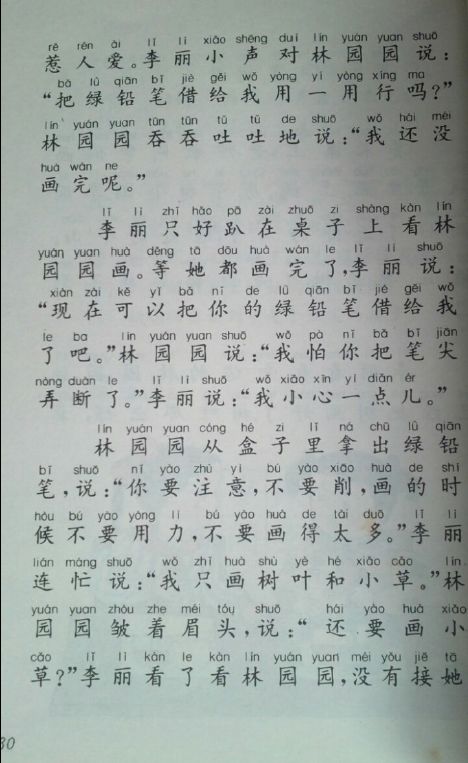 rě rén ài lǐ lì xiǎo shēng duì lín yuán yuan shuō
惹人爱。李丽小声对林园园说：
bǎ lǜ qiān bǐ jiè gěi wǒ yòng yi yòng xíng ma
“把绿铅笔借给我用一用行吗？”
lín yuán yuan tūn tūn tǔ tǔ de shuō wǒ hái méi
林园园吞吞吐吐地说：“我还没
huà wán ne
画完呢。”
lǐ lì zhǐ hǎo pā zài zhuō zi shàng kàn lín
李丽只好趴在桌子上看林
yuán yuan huà děng tā dōu huà wán le lǐ lì shuō
园园画。等她都画完了，李丽说：
xiàn zài kě yǐ bǎ nǐ de lǜ qiān bǐ jiè gěi wǒ
“现在可以把你的绿铅笔借给我
le ba lín yuán yuan shuō wǒ pà nǐ bǎ bǐ jiān
了吧。”林园园说：“我怕你把笔尖
nòng duàn le lǐ lì shuō wǒ xiǎo xīn yì diǎn ér
弄断了。”李丽说：“我小心一点儿。”
lín yuán yuan cóng hé zi lǐ ná chū lǜ qiān
林园园从盒子里拿出绿铅
bǐ shuō nǐ yào zhù yì bú yào xiāo huà de shí
笔，说：“你要注意，不要削，画的时
hòu bú yào yòng lì bú yào huà de tài duō lǐ lì
候不要用力，不要画得太多。”李丽
lián máng shuō wǒ zhǐ huà shù yè hé xiǎo cǎo lín
连忙说：“我只画树叶和小草。”林
yuán yuan zhòu zhe méi tóu shuō hái yào huà xiǎo
园园皱着眉头，说：“还要画小
cǎo lǐ lì kàn le kàn lín yuán yuan méi yǒu jiē tā
草？”李丽看了看林园园，没有接她
80